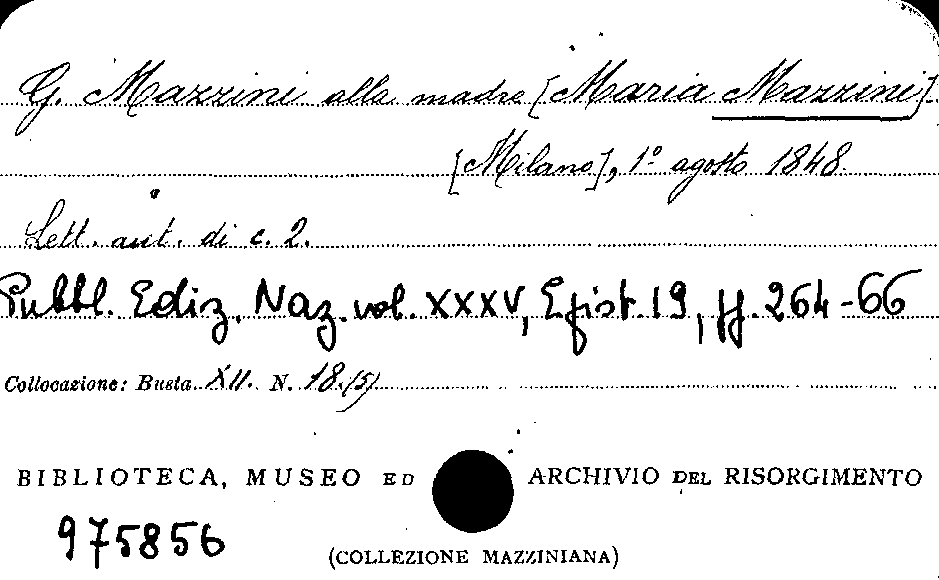 G. Mazzini alla madre [Maria Mazzini].
[Milano], 1º agosto 1848.
Lett. aut. di c. 2.
Pubbl. Ediz. Naz. vol. XXXV, Epist. 19, pp. 264-66
Collocazione: Busta XII. N. 18.(5)
BIBLIOTECA, MUSEO ED ARCHIVIO DEL RISORGIMENTO
975856
(COLLEZIONE MAZZINIANA)